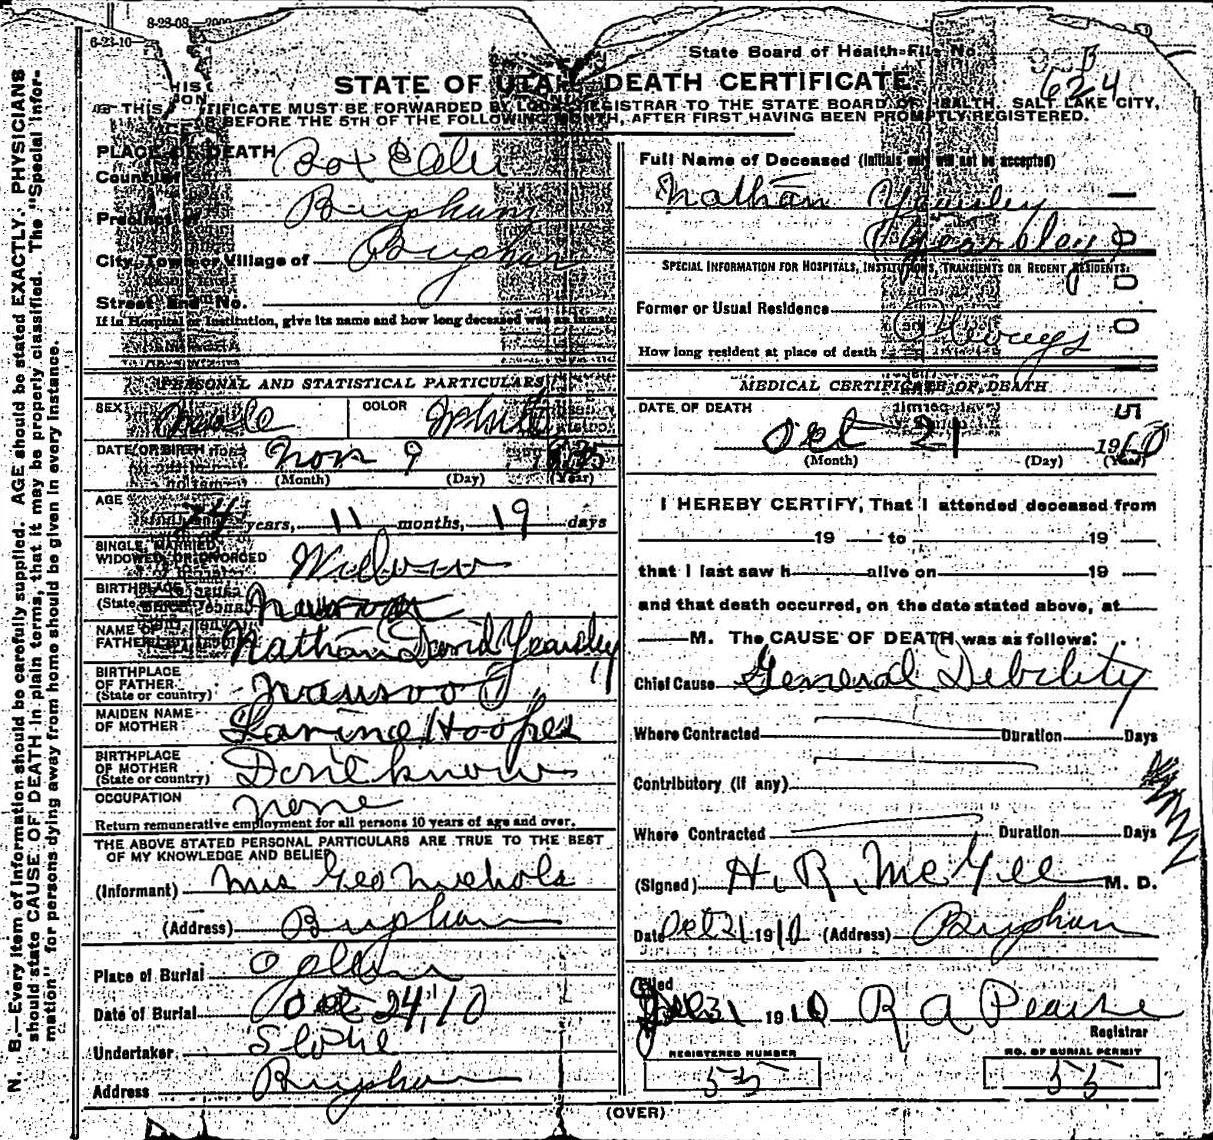 8-23-08—2000
6-23-10—
State Board of Health-File No.
92 B
624
STATE OF UTAH—DEATH CERTIFICATE
THIS CERTIFICATE MUST BE FORWARDED BY LOCAL REGISTRAR TO THE STATE BOARD OF HEALTH, SALT LAKE CITY,
BEFORE THE 5TH OF THE FOLLOWING MONTH, AFTER FIRST HAVING BEEN PROMPTLY REGISTERED.
N. B.—Every item of information should be carefully supplied. AGE should be stated EXACTLY. PHYSICIANS
should state CAUSE OF DEATH in plain terms, that it may be properly classified. The "Special Infor-
mation" for persons dying away from home should be given in every instance.
PLACE OF DEATH
County of Box Elder
Precinct of Brigham
City, Town or Village of Brigham
Street and No.
If in Hospital or Institution, give its name and how long deceased was an inmate
PERSONAL AND STATISTICAL PARTICULARS
SEX Male COLOR White
DATE OF BIRTH Nov 9
(Month) (Day) (Year)
AGE 74 years, 11 months, 19 days
SINGLE, MARRIED
WIDOWED, OR DIVORCED Widower
BIRTHPLACE
(State
NAME OF
FATHER Nathan David Yearsley
BIRTHPLACE
OF FATHER
(State or country)
MAIDEN NAME
OF MOTHER Hoopes
BIRTHPLACE
OF MOTHER
(State or country) Don't know
OCCUPATION none
Return remunerative employment for all persons 10 years of age and over.
THE ABOVE STATED PERSONAL PARTICULARS ARE TRUE TO THE BEST
OF MY KNOWLEDGE AND BELIEF
(Informant) Mrs Geo Nichols
(Address) Brigham
Place of Burial Ogden
Date of Burial Oct 24, 10
Undertaker
Address Brigham
Full Name of Deceased (Initials only will not be accepted)
Nathan Yearsley
(Yearsley)
SPECIAL INFORMATION FOR HOSPITALS, INSTITUTIONS, TRANSIENTS OR RECENT RESIDENTS.
Former or Usual Residence
How long resident at place of death
MEDICAL CERTIFICATE OF DEATH
DATE OF DEATH
Oct 21 1910
(Month) (Day) (Year)
I HEREBY CERTIFY, That I attended deceased from
19 to 19
that I last saw h alive on 19
and that death occurred, on the date stated above, at
M. The CAUSE OF DEATH was as follows:
Chief Cause General Debility
Where Contracted Duration Days
Contributory (if any)
Where Contracted Duration Days
(Signed) H. R. McGee M. D.
Date Oct 21 1910 (Address) Brigham
Filed
31 1910 R A Pearse
Registrar
REGISTERED NUMBER
55
NO. OF BURIAL PERMIT
55
(OVER)